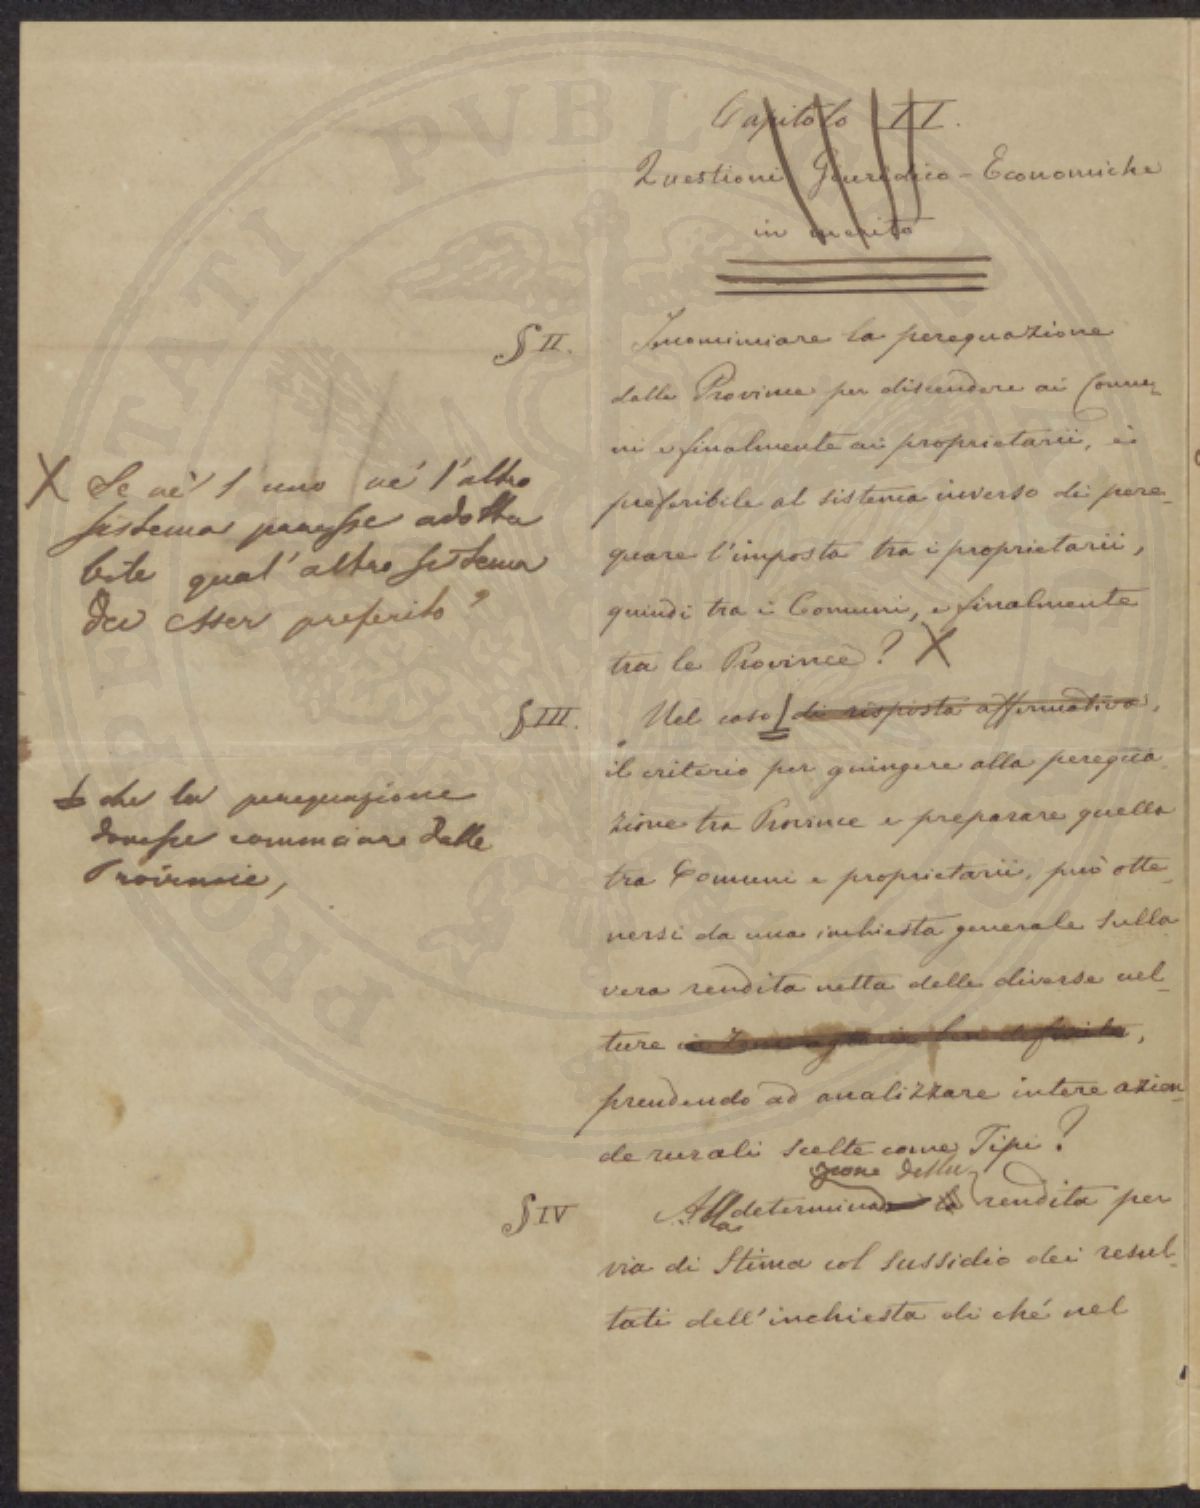 Capitolo III.
Questioni Giuridico-Economiche
in merito
§ II. Incominciare la perequazione
dalle Province per discendere ai Comu-
ni e finalmente ai proprietarii, è
preferibile al sistema inverso di pere-
quare l'imposta tra i proprietarii,
quindi tra i Comuni, e finalmente
tra le Province? X
X Se nè l'uno nè l'altro
sistema paresse adotta
bile qual'altro sistema
dev esser preferito?
§ III. Nel caso di risposta affermativa,
il criterio per giungere alla perequa-
zione tra Province e preparare quella
tra Comuni e proprietarii, può otte-
nersi da una inchiesta generale sulla
vera rendita netta delle diverse cul-
ture in Zone agrarie ben definite,
prendendo ad analizzare intere azien-
de rurali scelte come Tipi?
che la perequazione
dovesse cominciare dalle
Provincie,
§ IV Alla determinazione della rendita per
via di Stima col sussidio dei resul-
tati dell'inchiesta di che nel
PVBLI